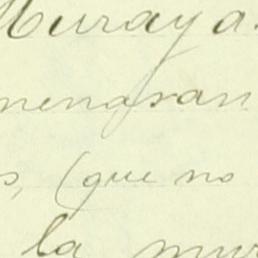 Muraya.
menasan
s, (que no
la mur